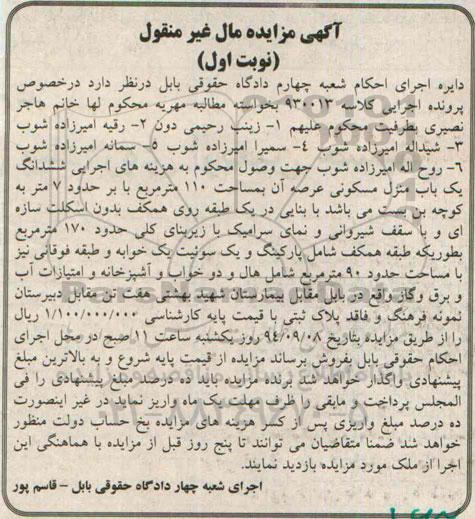 آگهی مزایده مال غیر منقول
(نوبت اول)
دایره اجرای احکام شعبه چهارم دادگاه حقوقی بابل درنظر دارد درخصوص
پرونده اجرایی کلاسه ۹۳۰۰۱۳ بخواسته مطالبه مهریه محکوم لها خانم هاجر
نصیری بطرفیت محکوم علیهم ۱- زینب رحیمی دون ۲- رقیه امیرزاده شوب
۳- شیداله امیرزاده شوب ۴- سمیرا امیرزاده شوب ۵- سمانه امیرزاده شوب
۶- روح اله امیرزاده شوب جهت وصول محکوم به هزینه های اجرایی ششدانگ
یک باب منزل مسکونی عرصه آن بمساحت ۱۱۰ مترمربع با بر حدود ۷ متر به
کوچه بن بست می باشد با بنایی در یک طبقه روی همکف بدون اسکلت سازه
ای و با سقف شیروانی و نمای سرامیک با زیربنای کلی حدود ۱۷۰ مترمربع
بطوریکه طبقه همکف شامل پارکینگ و یک سوئیت یک خوابه و طبقه فوقانی نیز
با مساحت حدود ۹۰ مترمربع شامل هال و دو خواب و آشپزخانه و امتیازات آب
و برق وگاز واقع در بابل مقابل بیمارستان شهید بهشتی هفت تن مقابل دبیرستان
نمونه فرهنگ و فاقد پلاک ثبتی با قیمت پایه کارشناسی ۱/۱۰۰/۰۰۰/۰۰۰ ریال
را از طریق مزایده بتاریخ ۹۴/۰۹/۰۸ روز یکشنبه ساعت ۱۱ صبح درمحل اجرای
احکام حقوقی بابل بفروش برساند مزایده از قیمت پایه شروع و به بالاترین مبلغ
پیشنهادی واگذار خواهد شد برنده مزایده باید ده درصد مبلغ پیشنهادی را فی
المجلس پرداخت و مابقی را ظرف مهلت یک ماه واریز نماید در غیر اینصورت
ده درصد مبلغ واریزی پس از کسر هزینه های مزایده بخ حساب دولت منظور
خواهد شد ضمنا متقاضیان می توانند تا پنج روز قبل از مزایده با هماهنگی این
اجرا از ملک مورد مزایده بازدید نمایند.
اجرای شعبه چهار دادگاه حقوقی بابل - قاسم پور